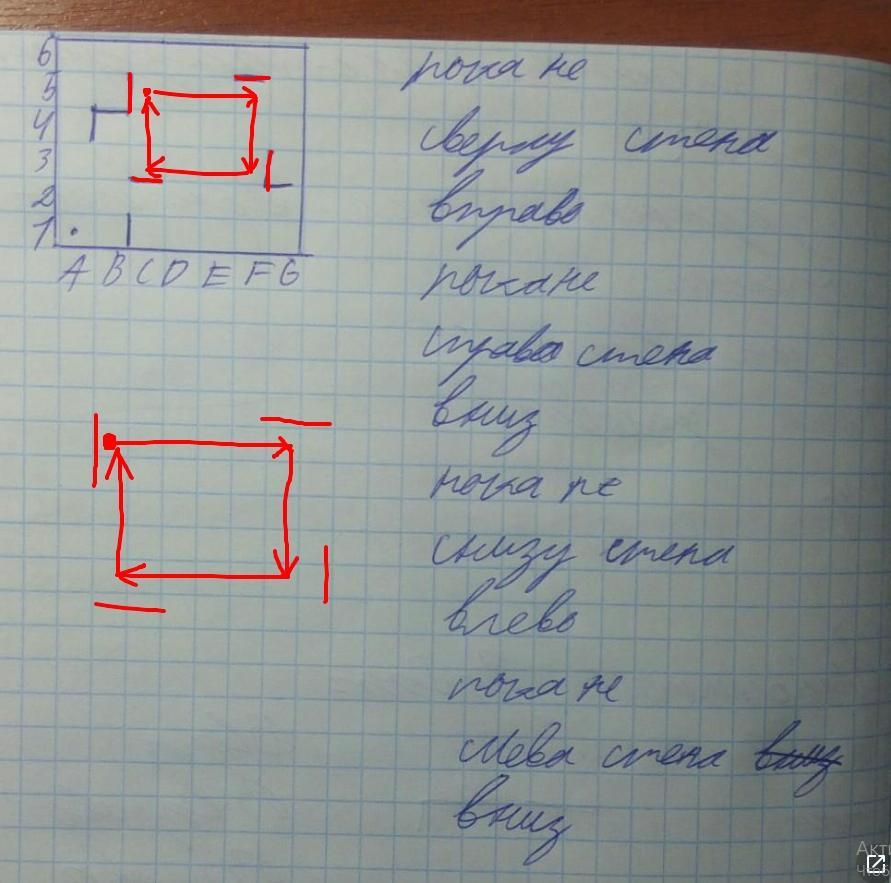 6
5
4
3
2
1
A B C D E F G
пока не
сверху стена
вправо
пока не
справа стена
вниз
пока не
снизу стена
влево
пока не
слева стена вниз
вниз
Акти
чтоб